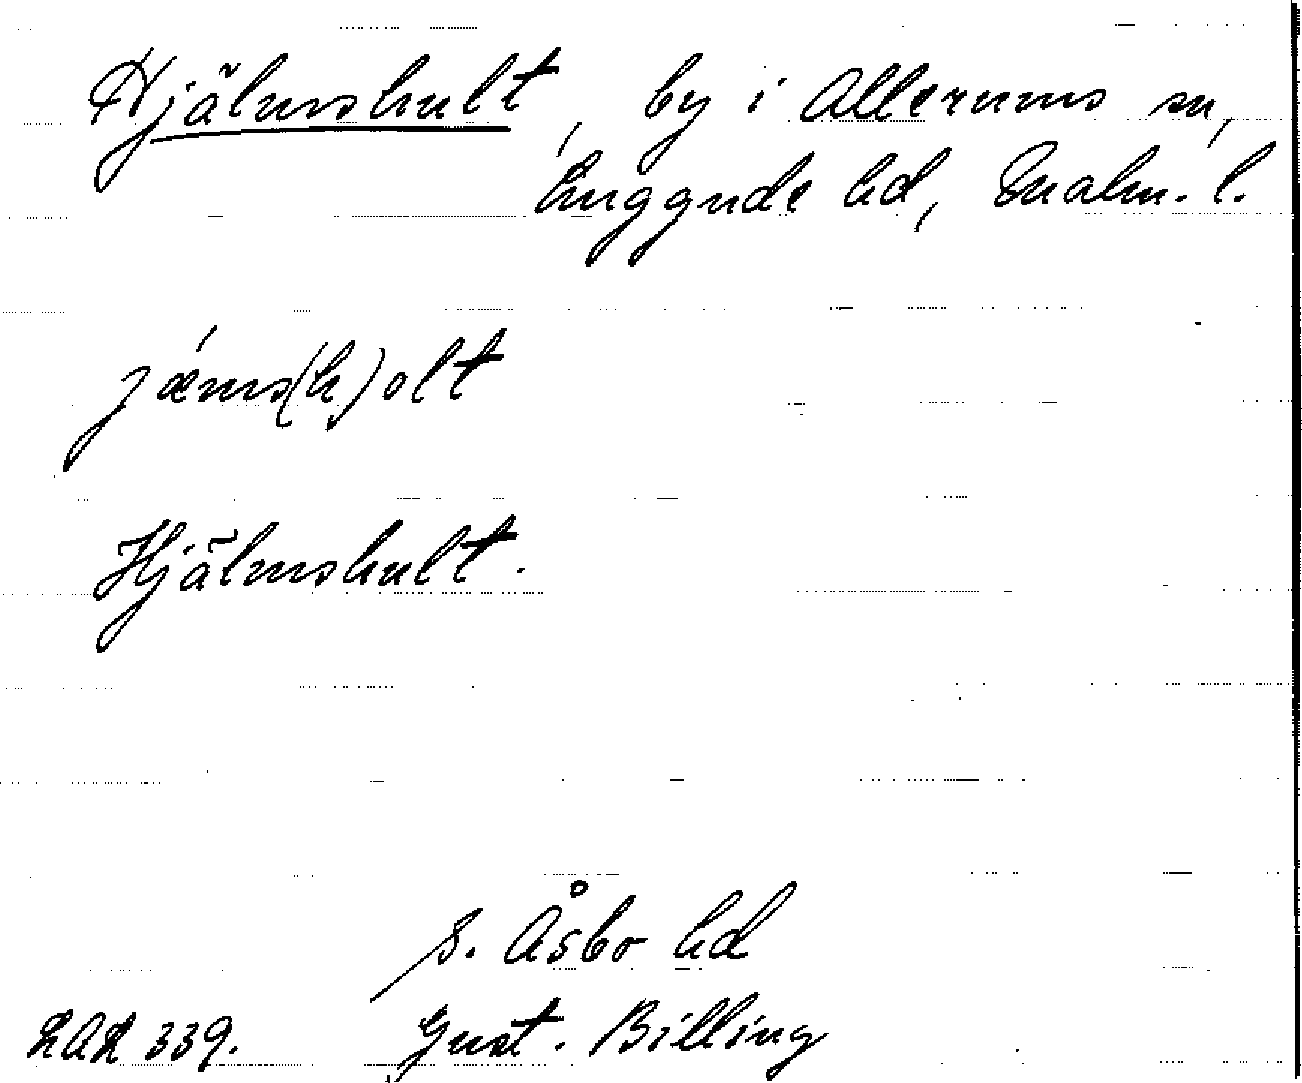 Hjälmshult, by i Allerums sn,
Luggude hd, Malm. l.
jǽms(h)olt
Hjälmshult.
S. Åsbo hd
LAL 339. Gust. Billing